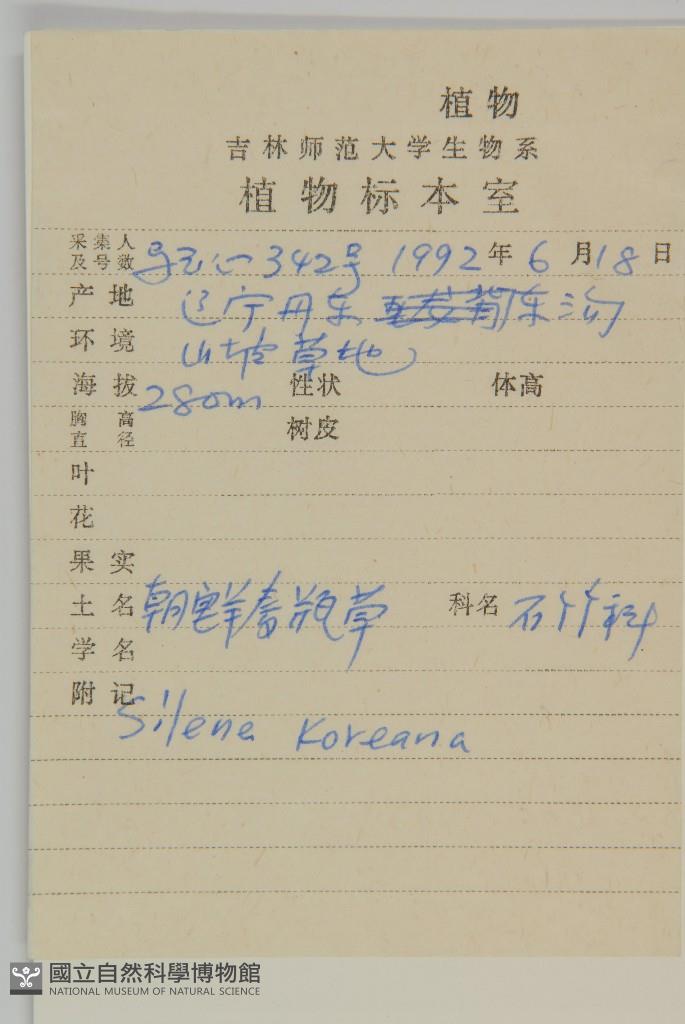 植物
吉林师范大学生物系
植物标本室
采集人及号数 342号 1992年6月18日
产地 辽宁丹东 东沟
环境 山坡草地
海拔 280m 性状 体高
胸高直径 树皮
叶
花
果实
土名 朝鲜麦瓶草 科名 石竹科
学名
附记
Silene Koreana
國立自然科學博物館
NATIONAL MUSEUM OF NATURAL SCIENCE